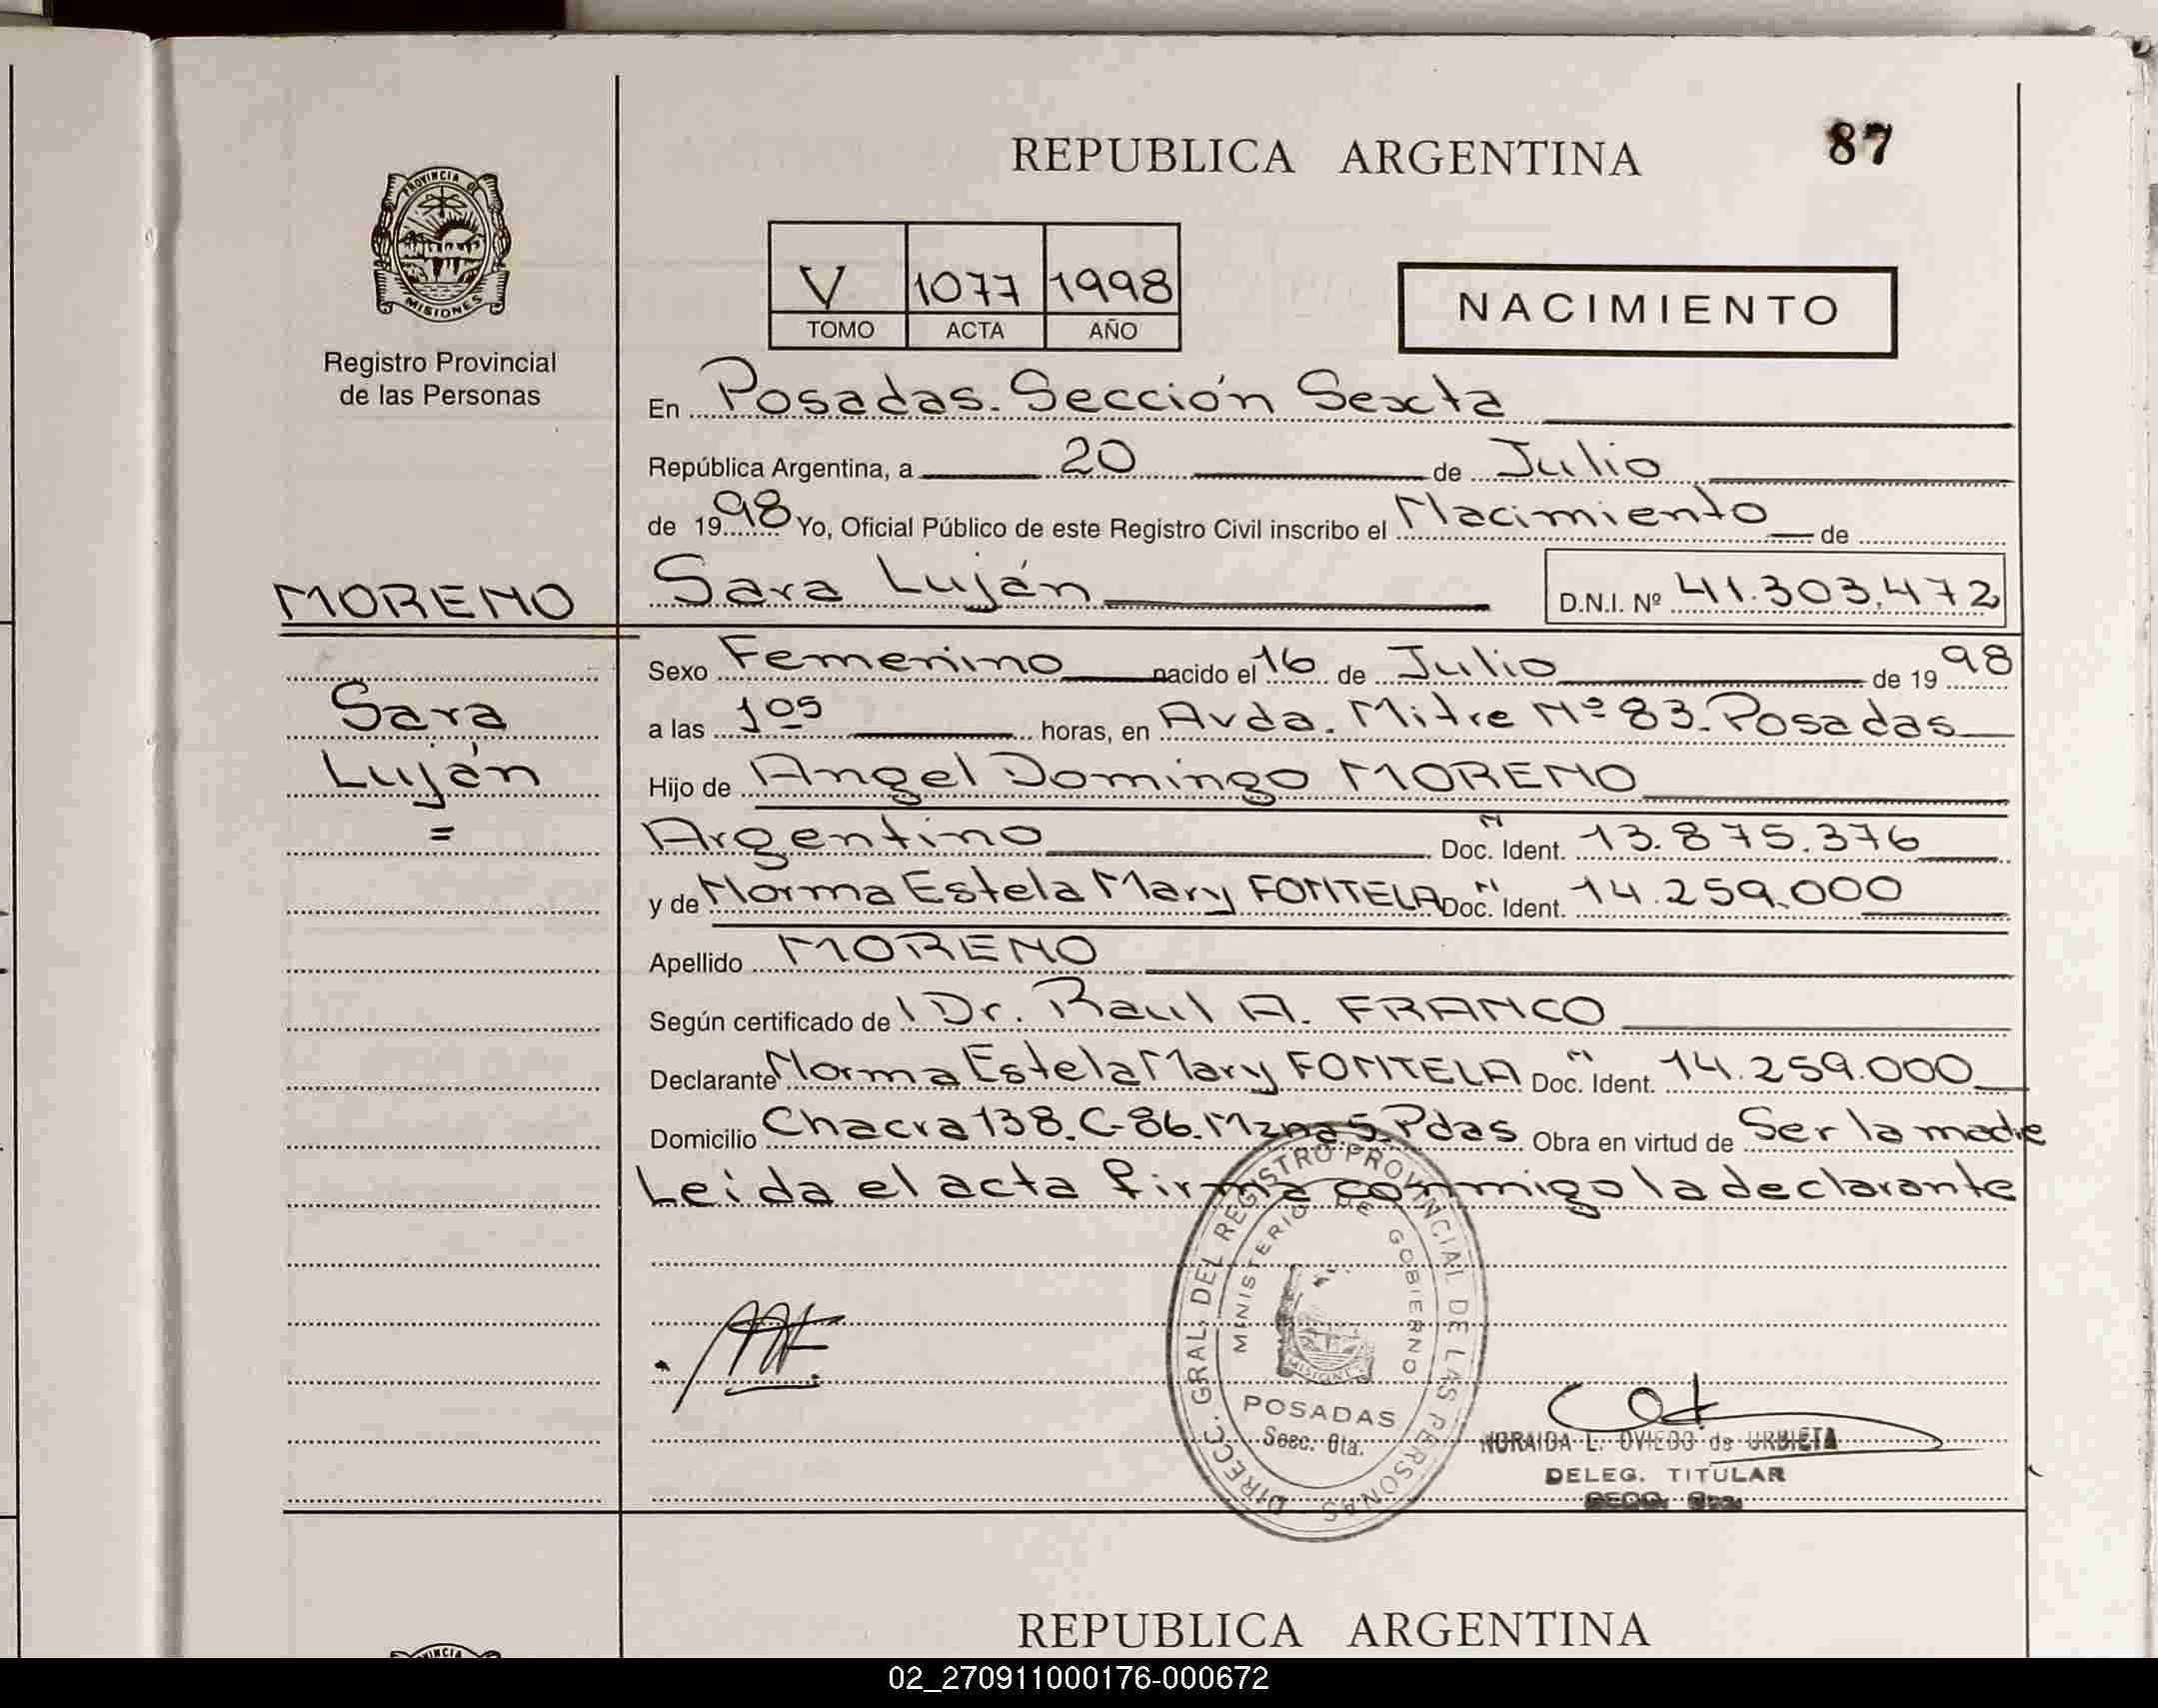 REPUBLICA ARGENTINA
87
PROVINCIA DE
MISIONES
Registro Provincial
de las Personas
V 1077 1998
TOMO ACTA AÑO
NACIMIENTO
En Posadas. Sección Sexta
República Argentina, a 20 de Julio
de 1998 Yo, Oficial Público de este Registro Civil inscribo el Nacimiento de
MORENO
Sara Luján D.N.I. Nº 41.303.472
Sara
Luján
=
Sexo Femenino nacido el 16 de Julio de 1998
a las 1 05 horas, en Avda. Mitre Nº 83. Posadas
Hijo de Angel Domingo MORENO
Argentino Doc. Ident. 13.875.376
y de Norma Estela Mary FONTELA Doc. Ident. 14.259.000
Apellido MORENO
Según certificado de Dr. Raul A. FRANCO
Declarante Norma Estela Mary FONTELA Doc. Ident. 14.259.000
Domicilio Chacra 138. C-86. Mzna 5. Pdas Obra en virtud de Ser la madre
Leida el acta firma conmigo la declarante
DIRECC. GRAL. DEL REGISTRO PROVINCIAL DE LAS PERSONAS
MINISTERIO DE GOBIERNO
MISIONES
POSADAS
Secc. 6ta.
NORAIDA L. OVIEDO de URBIETA
DELEG. TITULAR
REPUBLICA ARGENTINA
02_270911000176-000672